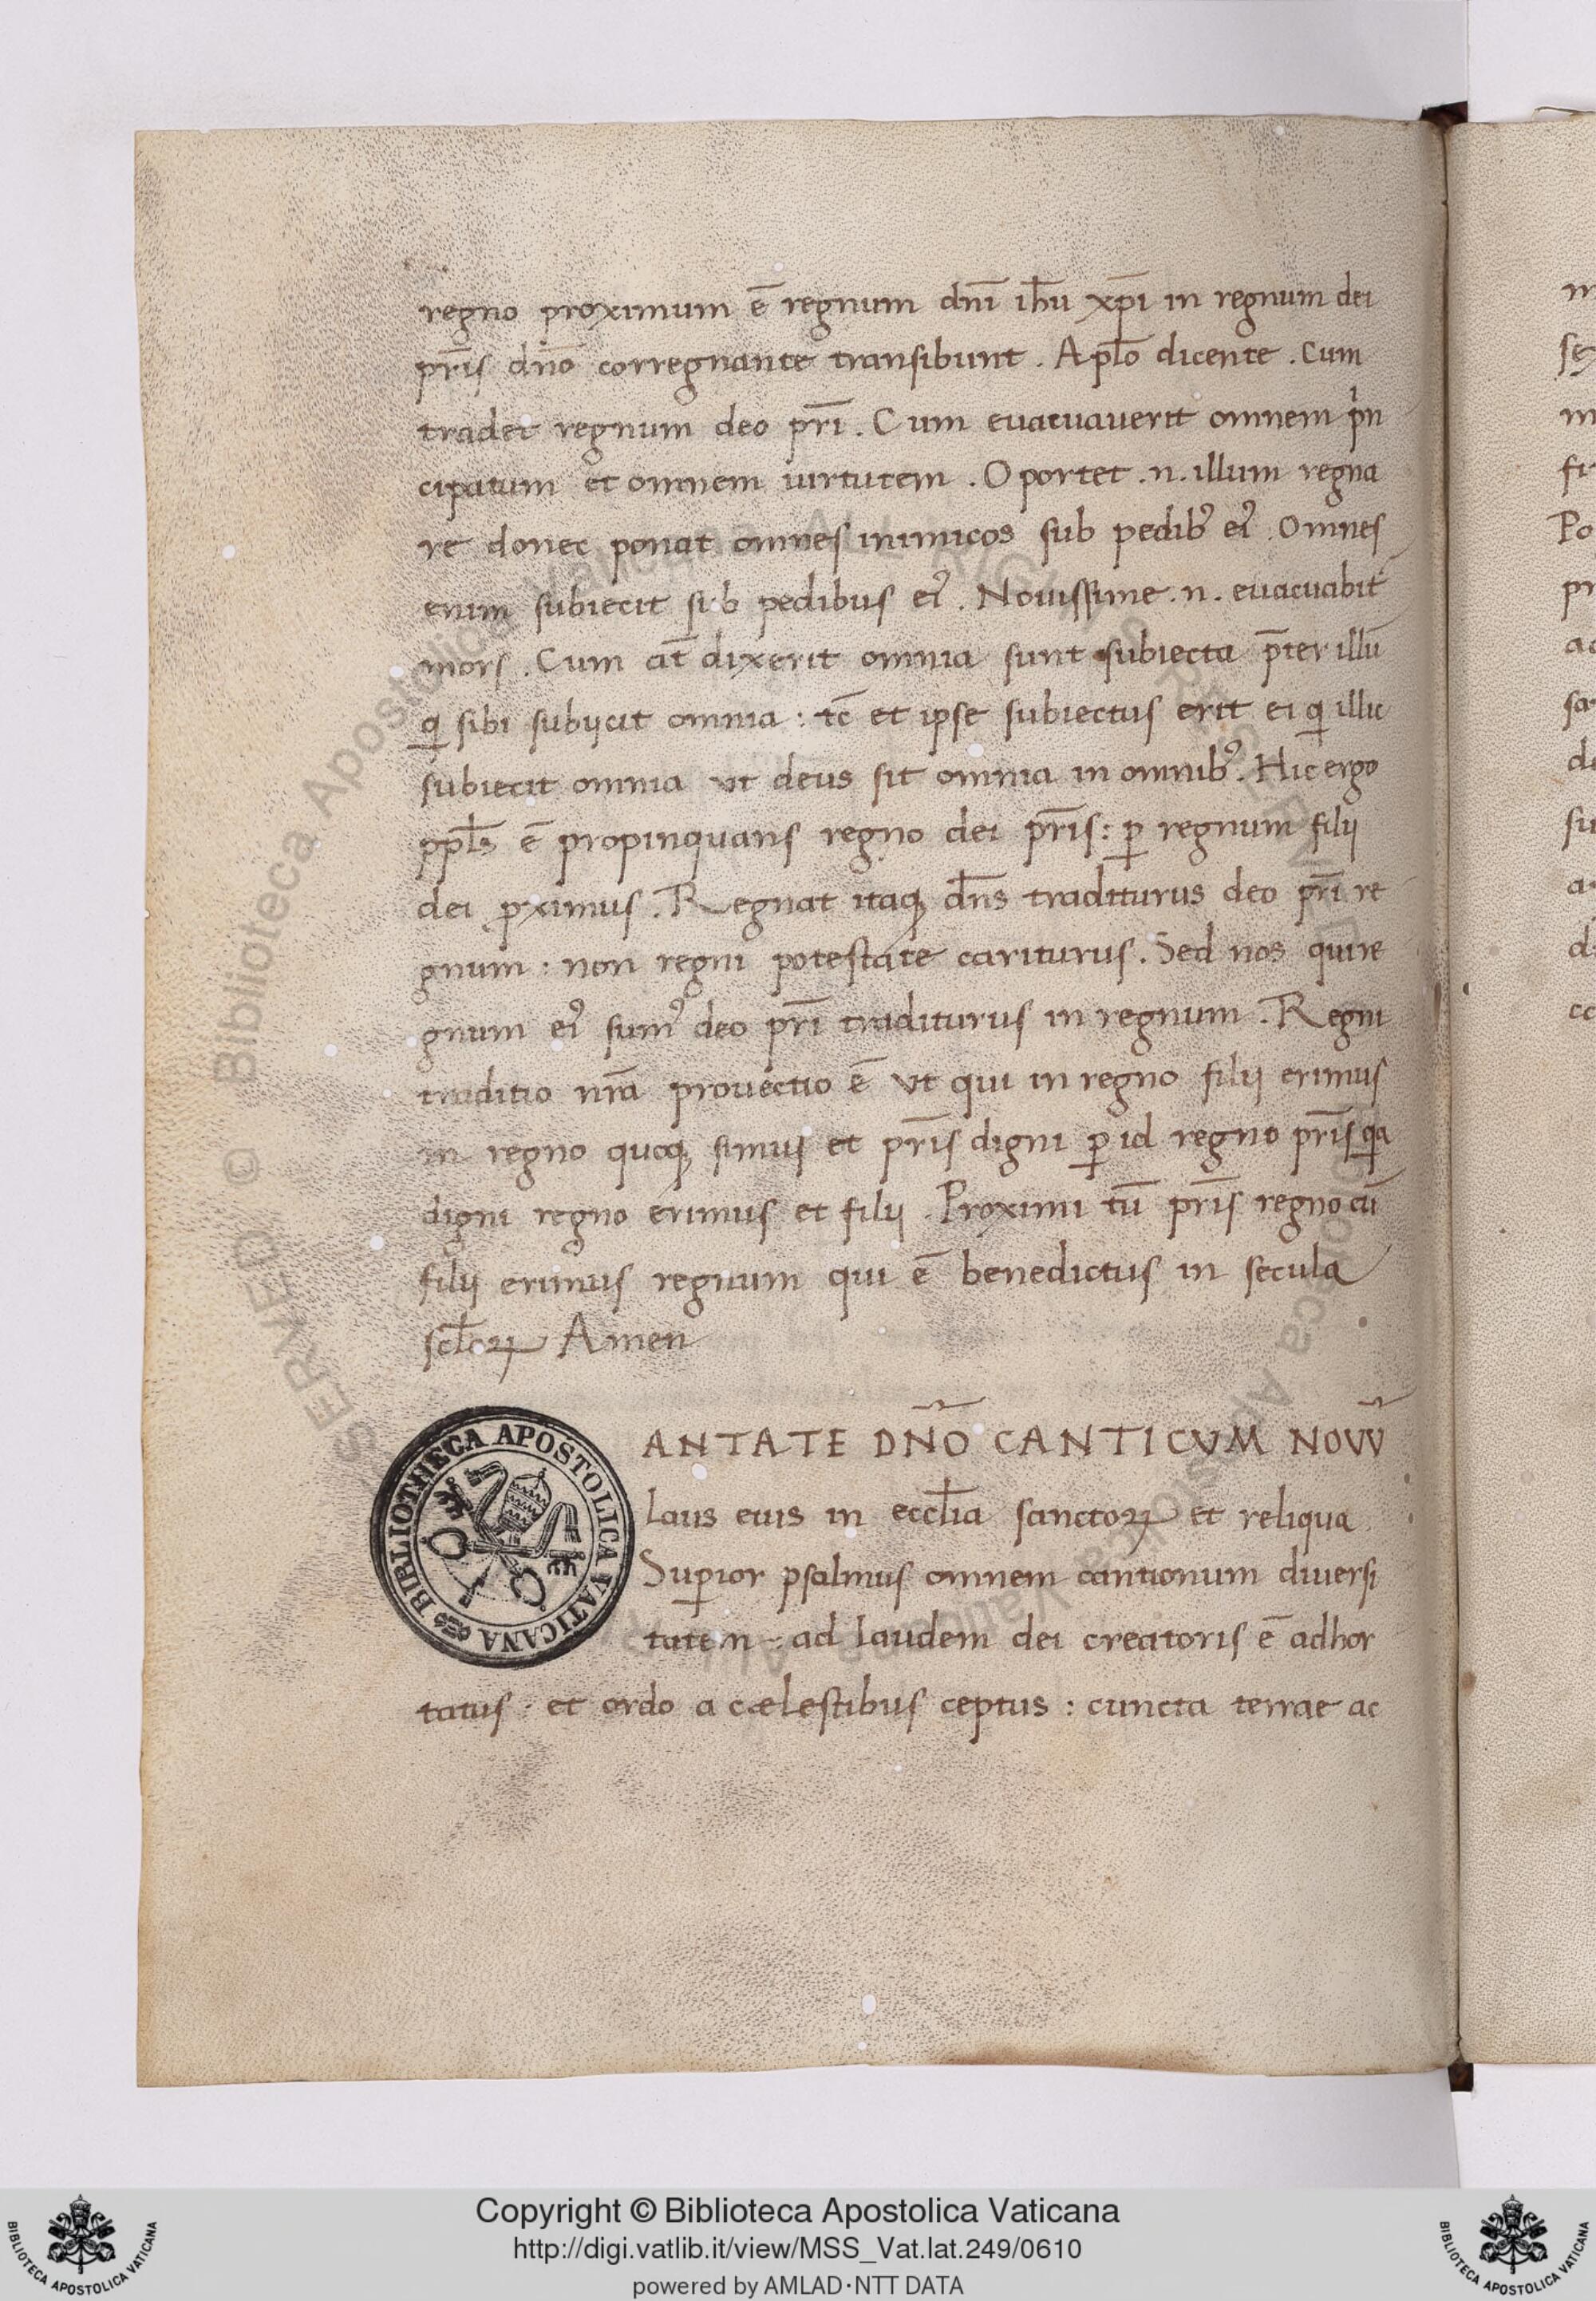 regno proximum ē regnum dnī ihū xp̄i in regnum dei
pr̄is dn̄o corregnante transibunt . Apl̄o dicente . Cum
tradet regnum deo pr̄i . Cum euacuauerit omnem pⁱn
cipatum et omnem uirtutem . Oportet .n. illum regna
re donec ponat omnes inimicos sub pedibꝰ eiꝰ . Omnes
enim subiecit sub pedibus eiꝰ . Nouissime .n. euacuabit᷑
mors . Cum at̄ dixerit omnia sunt subiecta p̄ter illū
qͥ sibi subijcit omnia : tc̄ et ipse subiectus erit ei qͥ illic
subiecit omnia ut deus sit omnia in omnibꝰ . Hic ergo
ppl̄s ē propinquans regno dei pr̄is : ꝑ regnum filij
dei ꝓximus . Regnat itaqꝫ dn̄s traditurus deo pr̄i re
gnum : non regni potestate cariturus . Sed nos qui re
gnum eiꝰ sumꝰ deo pr̄i traditurus in regnum . Regni
traditio nr̄a prouectio ē ut qui in regno filij erimus
in regno quoqꝫ simus et pr̄is digni ꝑ id regno pr̄is qa
digni regno erimus et filij . Proximi tū pr̄is regno cū
filij erimus regnum qui ē benedictus in secula
scl̄oꝝ Amen
ANTATE DN̄O CANTICVM NOVV̄
Laus eius in eccl̄ia sanctoꝝ et reliqua
Suꝑior psalmus omnem cantionum diuersi
tatem : ad laudem dei creatoris ē adhor
tatus : et ordo a cælestibus ceptus : cuncta terrae ac
m
se
m
fi
Po
pr
ac
sa
de
su
a
d
cc
BIBLIOTHECA APOSTOLICA VATICANA
© Biblioteca Apostolica Vaticana
Copyright © Biblioteca Apostolica Vaticana
http://digi.vatlib.it/view/MSS_Vat.lat.249/0610
powered by AMLAD·NTT DATA
BIBLIOTECA APOSTOLICA VATICANA
BIBLIOTECA APOSTOLICA VATICANA